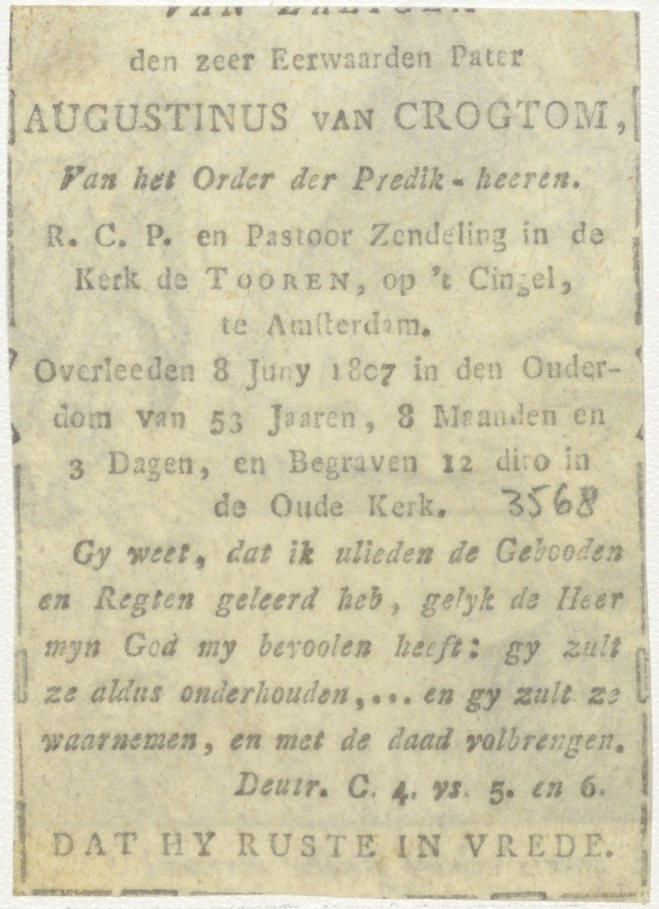 VAN ZALIGEN
den zeer Eerwaarden Pater
AUGUSTINUS VAN CROGTOM,
Van het Order der Predik-heeren.
R. C. P. en Pastoor Zendeling in de
Kerk de TOOREN, op 't Cingel,
te Amsterdam.
Overleeden 8 Juny 1807 in den Ouder-
dom van 53 Jaaren, 8 Maanden en
3 Dagen, en Begraven 12 dito in
de Oude Kerk. 3568
Gy weet, dat ik ulieden de Gebooden
en Regten geleerd heb, gelyk de Heer
myn God my bevoolen heeft: gy zult
ze aldus onderhouden,... en gy zult ze
waarnemen, en met de daad volbrengen.
Deutr. C. 4. vs. 5. en 6.
DAT HY RUSTE IN VREDE.